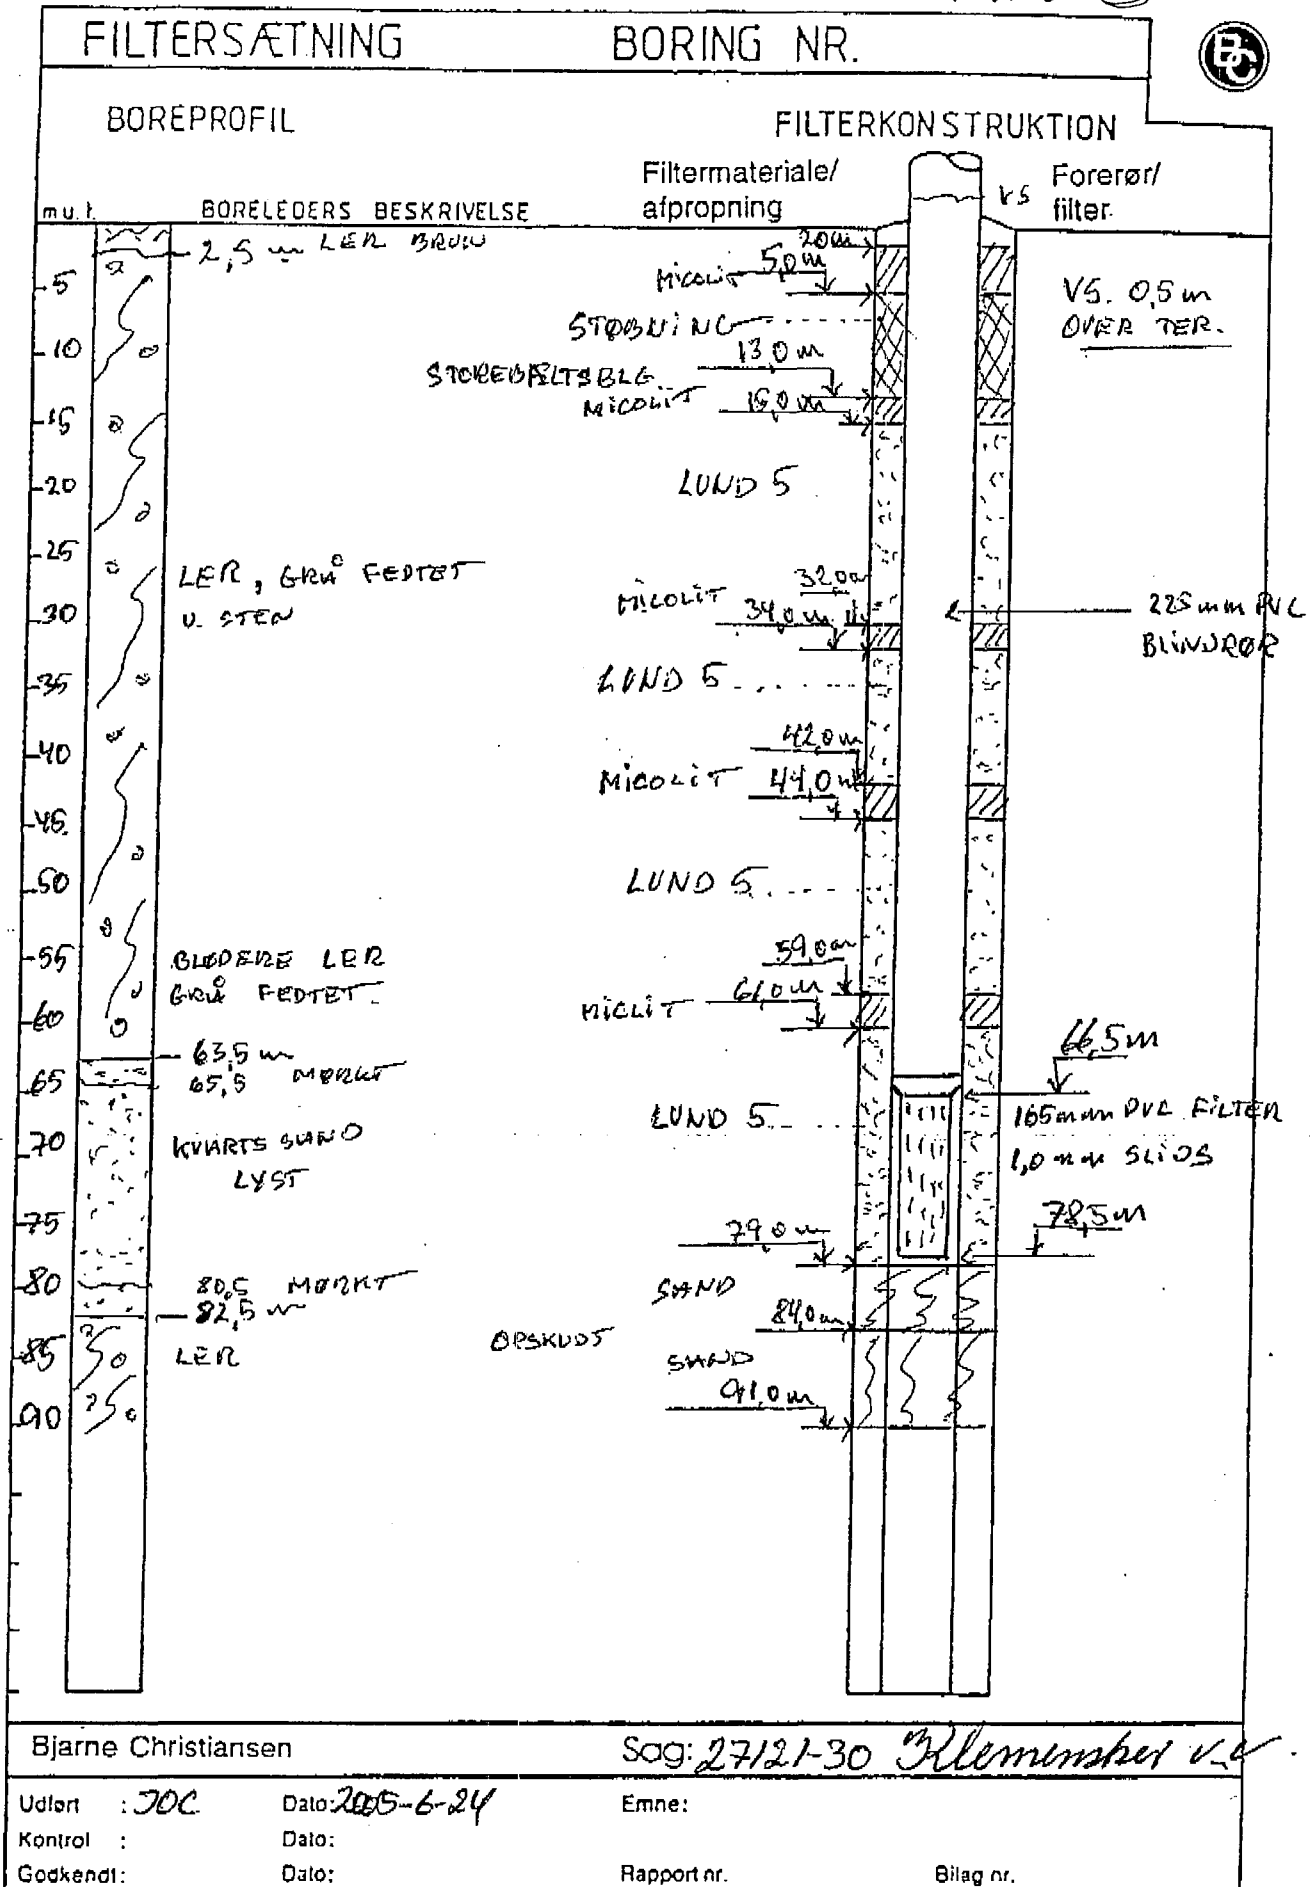 FILTERSÆTNING BORING NR.
BC
BOREPROFIL
FILTERKONSTRUKTION
Filtermateriale/
afpropning
Forerør/
filter.
VS
m u. t. BORELEDERS BESKRIVELSE
2,5 m LER BRUN
5
10
15
20
25
30
35
40
45
50
55
60
65
70
75
80
85
90
LER, GRÅ FEDTET
U. STEN
BLØDERE LER
GRÅ FEDTET
63,5 m
65,5 MØRKT
KVARTS SAND
LYST
80,5 MØRKT
82,5 m
LER
5,0 m
MICOLIT
STØBNING
13,0 m
STOREBÆLTSBLG
MICOLIT 15,0 m
LUND 5
32,0 m
MICOLIT
34,0 m
LUND 5
42,0 m
MICOLIT 44,0 m
LUND 5
59,0 m
MICLIT 61,0 m
LUND 5
79,0 m
SAND
84,0 m
OPSKUDT
SAND
91,0 m
VS. 0,5 m
OVER TER.
225 mm PVC
BLINDRØR
66,5 m
165 mm PVC FILTER
1,0 mm SLIDS
78,5 m
Bjarne Christiansen
Sag: 27121-30 Klemensker V.V.
Udført : JOC Dato: 2005-6-24 Emne:
Kontrol : Dato:
Godkendt: Dato: Rapport nr. Bilag nr.